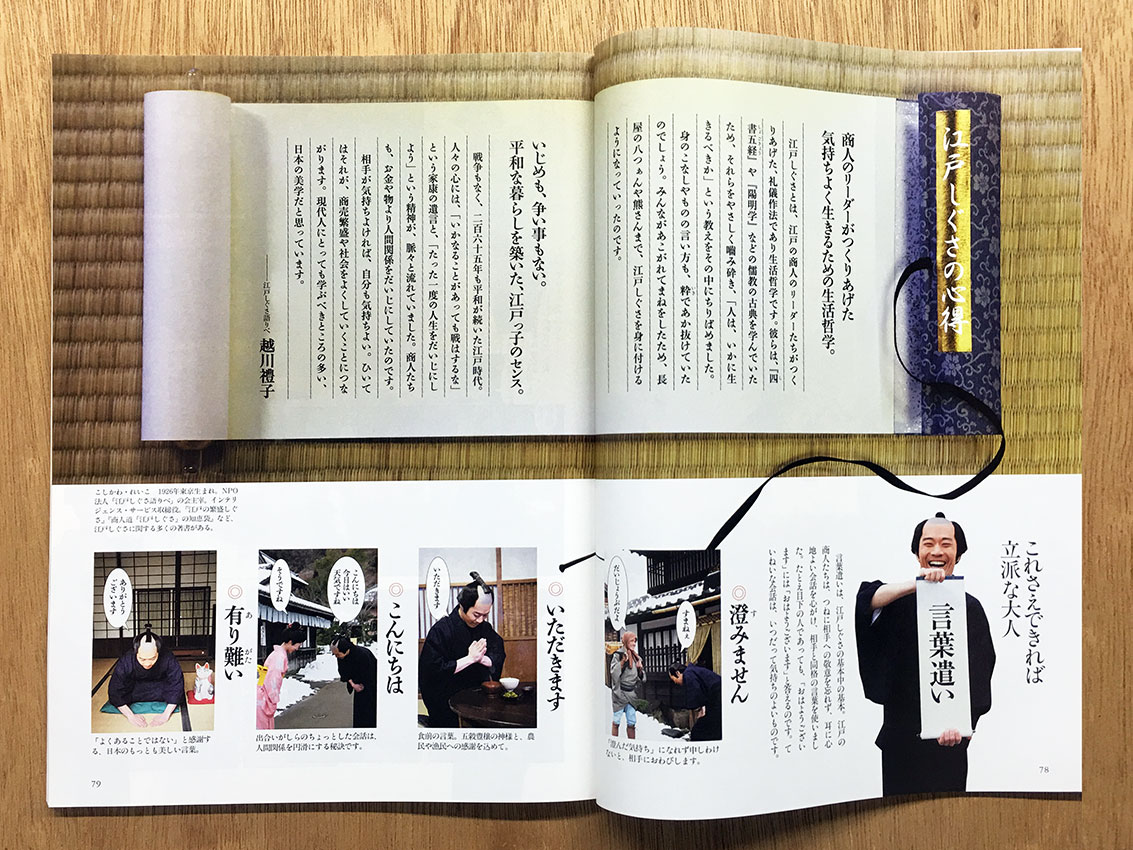 江戸しぐさの心得
商人のリーダーがつくりあげた
気持ちよく生きるための生活哲学。
江戸しぐさとは、江戸の商人のリーダーたちがつく
りあげた、礼儀作法であり生活哲学です。彼らは、『四
書五経』や『陽明学』などの儒教の古典を学んでいた
ため、それらをやさしく噛み砕き、「人は、いかに生
きるべきか」という教えをその中にちりばめました。
身のこなしやものの言い方も、粋であか抜けていた
のでしょう。みんながあこがれてまねをしたため、長
屋の八つぁんや熊さんまで、江戸しぐさを身に付ける
ようになっていったのです。
いじめも、争い事もない。
平和な暮らしを築いた、江戸っ子のセンス。
戦争もなく、二百六十五年も平和が続いた江戸時代。
人々の心には、「いかなることがあっても戦はするな」
という家康の遺言と、「たった一度の人生をだいじにし
よう」という精神が、脈々と流れていました。商人たち
も、お金や物より人間関係をだいじにしていたのです。
相手が気持ちよければ、自分も気持ちよい。ひいて
はそれが、商売繁盛や社会をよくしていくことにつな
がります。現代人にとっても学ぶべきところの多い、
日本の美学だと思っています。
――江戸しぐさ語りべ 越川禮子
こしかわ・れいこ 1926年東京生まれ。NPO
法人「江戸しぐさ語りべ」の会主宰。インテリ
ジェンス・サービス取締役。『江戸の繁盛しぐ
さ』『商人道「江戸しぐさ」の知恵袋』など、
江戸しぐさに関する多くの著書がある。
これさえできれば
立派な大人
言葉遣い
言葉遣いは、江戸しぐさの基本中の基本。江戸の
商人たちは、つねに相手への敬意を忘れず、耳に心
地よい会話を心がけ、相手と同格の言葉を使いまし
た。たとえ目下の人であっても、「おはようござい
ます」には「おはようございます」と答えるのです。て
いねいな会話は、いつだって気持ちのよいものです。
◎澄みません
す
すまねぇ
だいじょうぶだよ
「澄んだ気持ち」になれず申しわけ
ないと、相手におわびします。
◎いただきます
いただきます
食前の言葉。五穀豊穣の神様と、農
民や漁民への感謝を込めて。
◎こんにちは
こんにちは
今日はいい
天気ですね
そうですね
出合いがしらのちょっとした会話は、
人間関係を円滑にする秘訣です。
◎有り難い
あ がた
ありがとう
ございます
「よくあることではない」と感謝す
る、日本のもっとも美しい言葉。
78
79